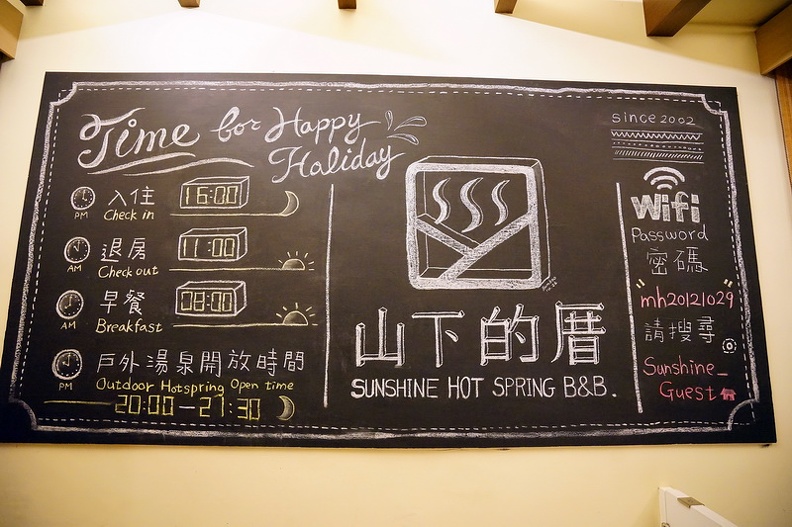 Time for Happy
Haliday
PM
入住
Check in
16:00
AM
退房
Check out
11:00
AM
早餐
Breakfast
08:00
PM
戶外湯泉開放時間
Outdoor Hotspring Open time
20:00-21:30
山下的厝
SUNSHINE HOT SPRING B&B.
since 2002
Wifi
Password
密碼
"mh20121029"
請搜尋
Sunshine_
Guest